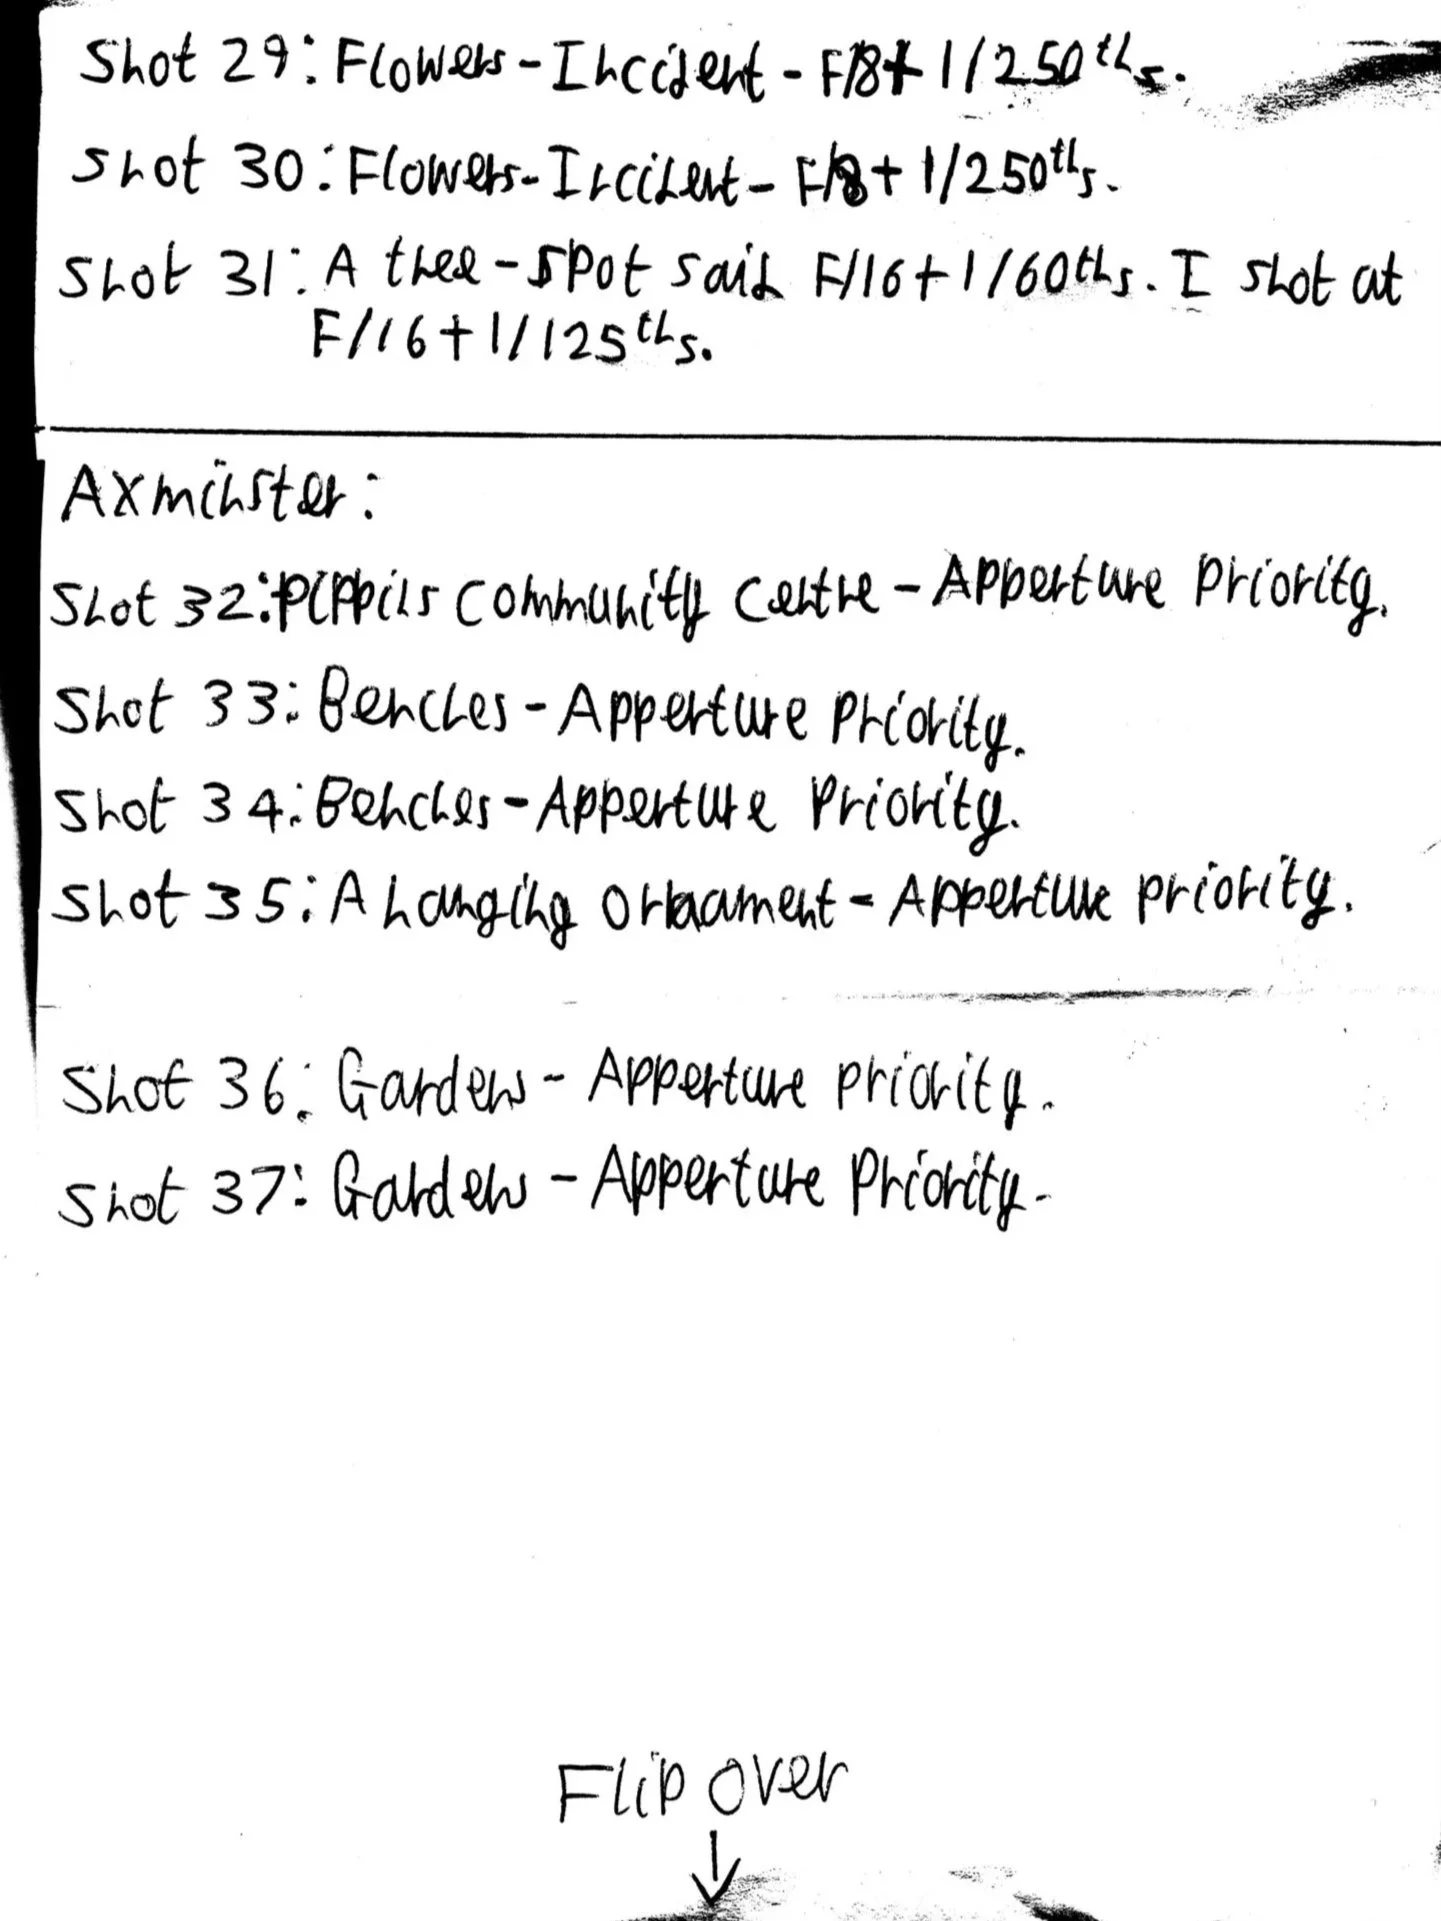 Shot 29: Flowers - Incident - F/8 + 1/250ths.
Shot 30: Flowers - Incident - F/8 + 1/250ths.
Shot 31: A tree - spot said F/16 + 1/60ths. I shot at
F/16 + 1/125ths.
Axminster:
Shot 32: Pippins Community Centre - Apperture Priority.
Shot 33: Benches - Apperture Priority.
Shot 34: Benches - Apperture Priority.
Shot 35: A hanging ornament - Apperture priority.
Shot 36: Gardens - Apperture priority.
Shot 37: Gardens - Apperture Priority.
Flip over
↓